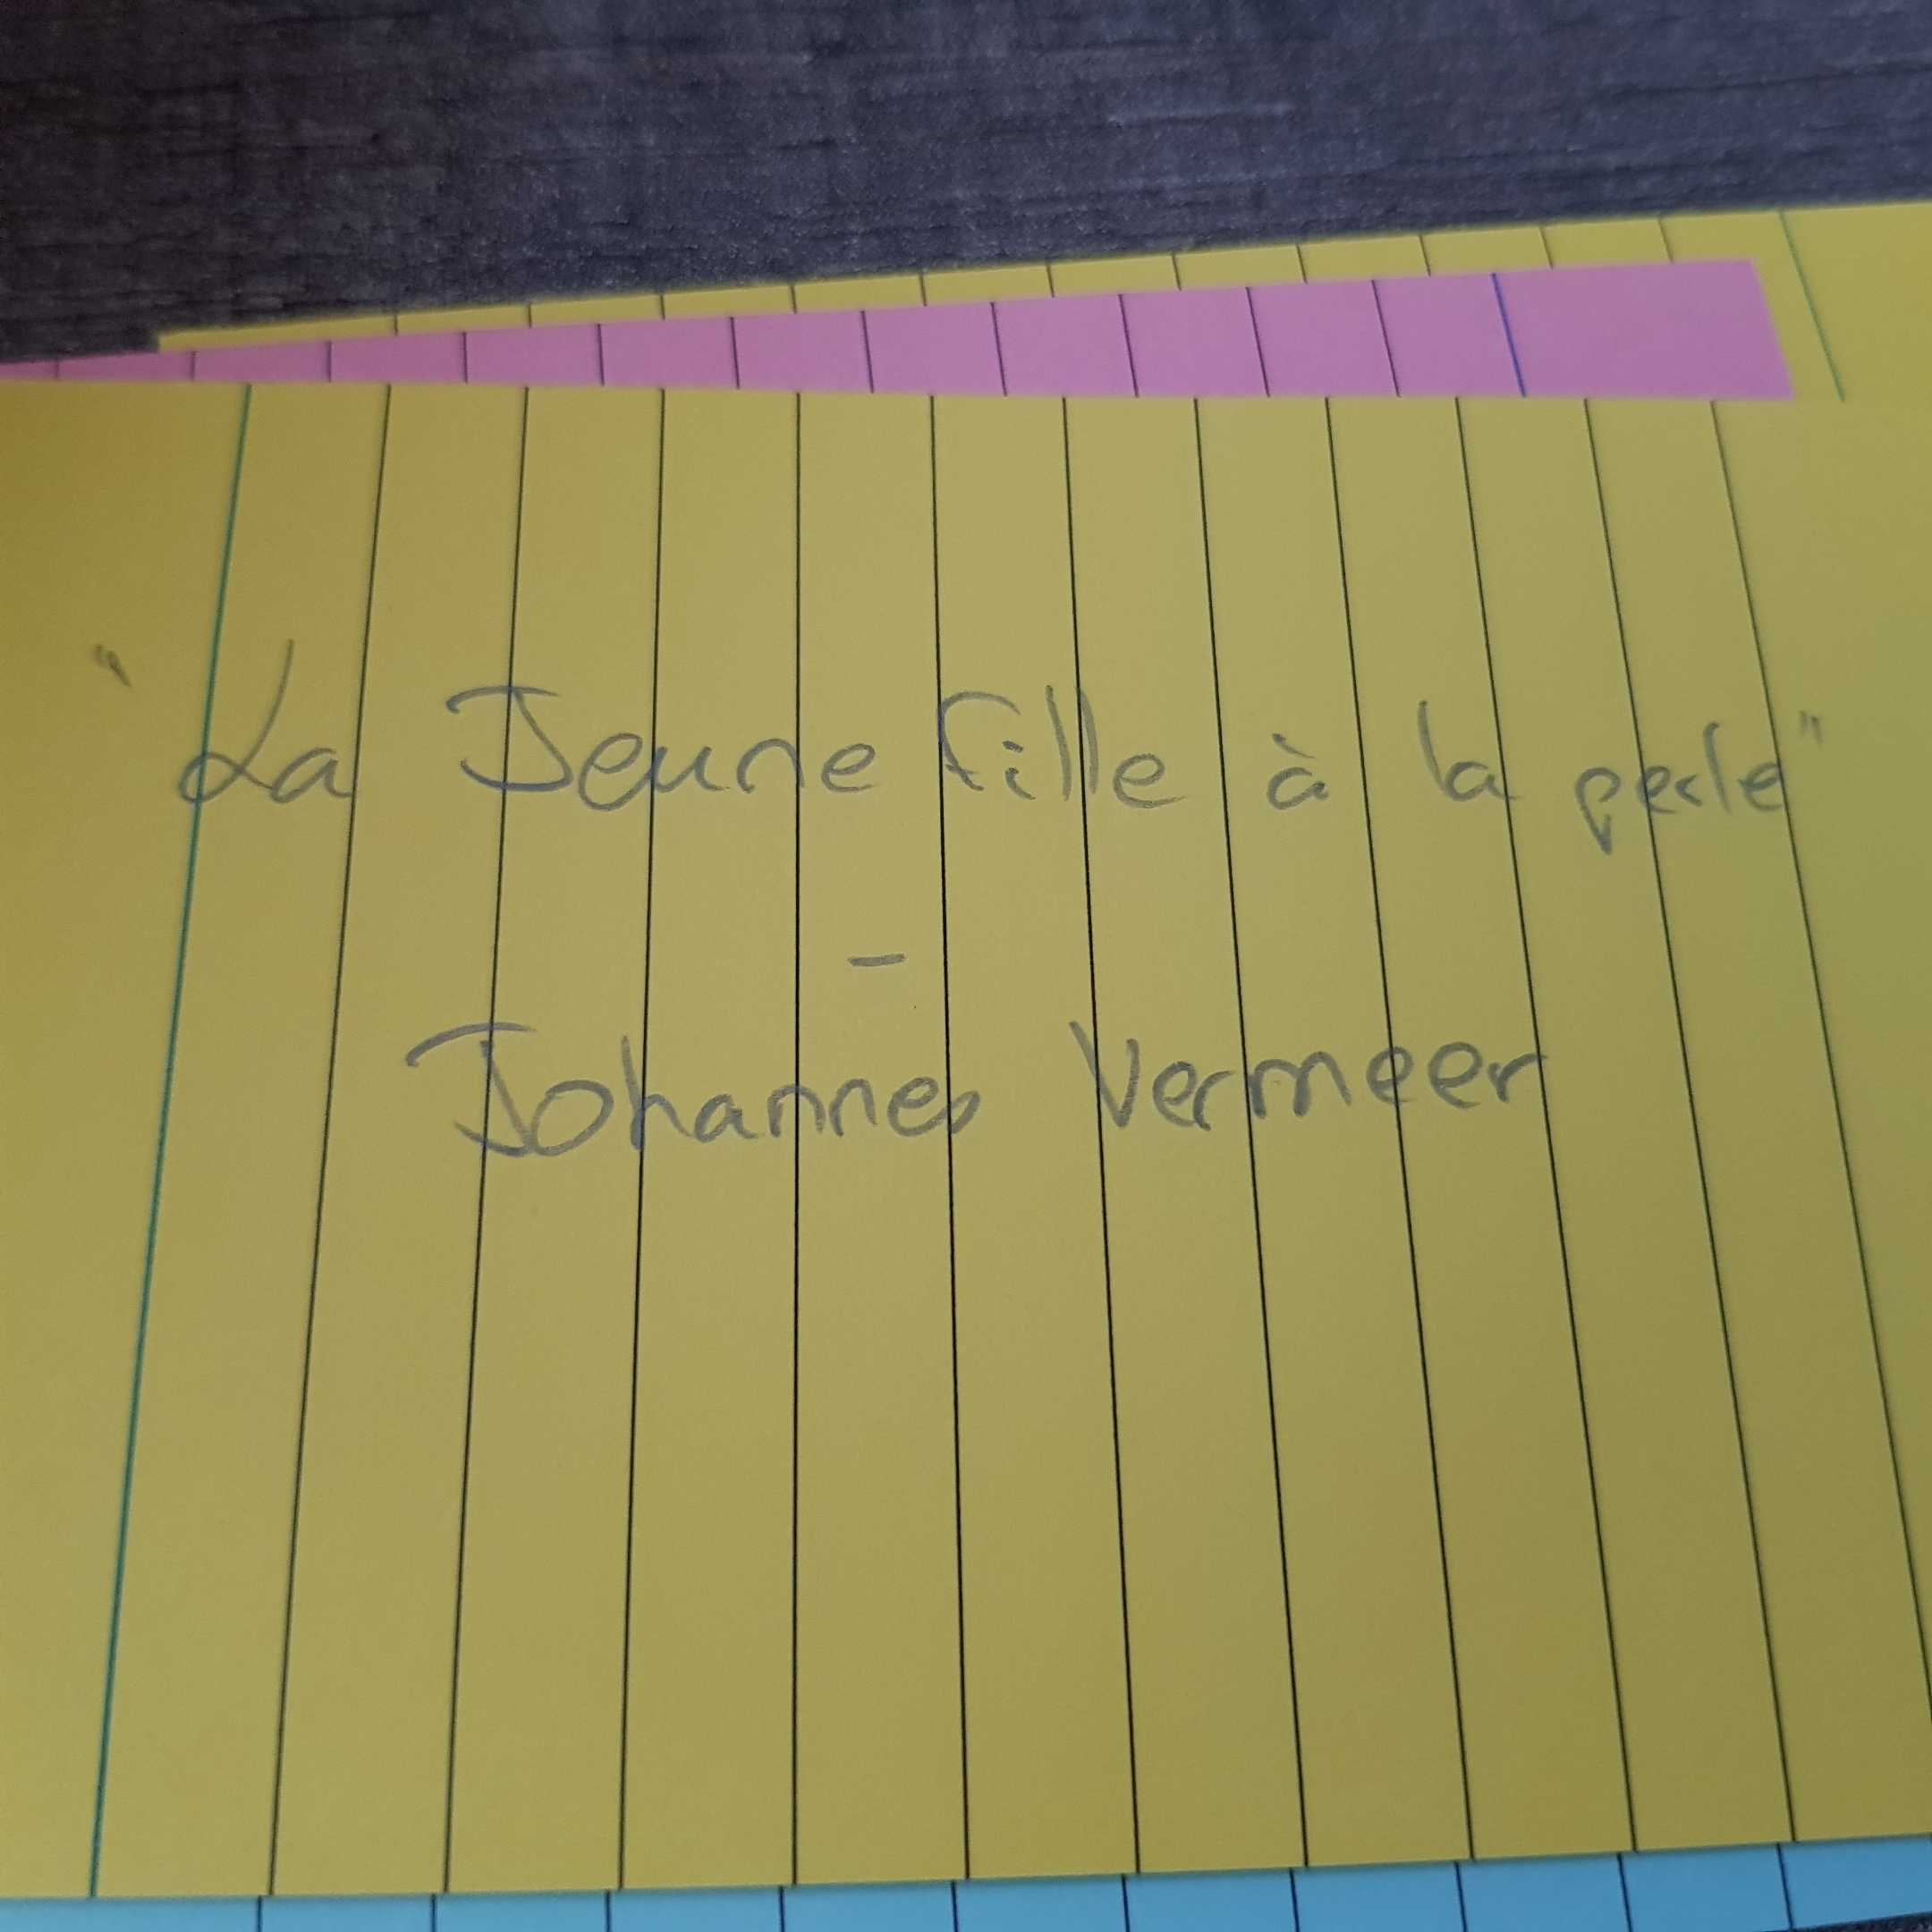 "La Jeune fille à la perle"
-
Johannes Vermeer